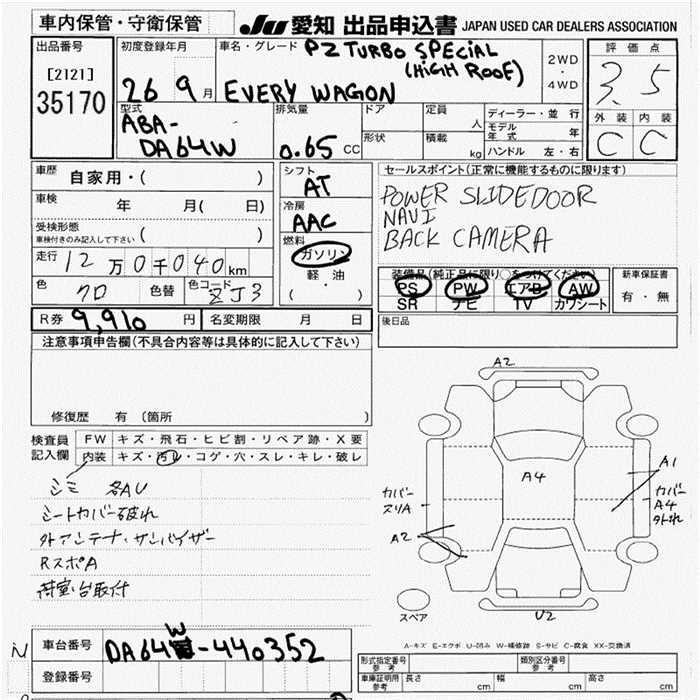 車内保管・守衛保管
JU 愛知 出品申込書 JAPAN USED CAR DEALERS ASSOCIATION
出品番号
[2121]
35170
初度登録年月
26 9月
車名・グレード PZ TURBO SPECIAL
(HIGH ROOF)
EVERY WAGON
2WD
・
4WD
評価点
3.5
外装 内装
C C
型式
ABA-
DA64W
排気量
0.65 CC
ドア
形状
定員
人
積載
kg
ディーラー・並行
モデル
年式 年
ハンドル 左・右
車歴 自家用・( )
車検 年 月( 日)
受検形態
車検付きのみ記入して下さい ( )
走行 12万0千040km
色 クロ 色替 色コード ZJ3
シフト
AT
冷房
AAC
燃料
ガソリン
軽油
( ・ )
セールスポイント(正常に機能するものに限ります)
POWER SLIDEDOOR
NAVI
BACK CAMERA
装備品(純正品に限り○をつけてください)
PS PW エアB AW
SR ナビ TV カワシート
新車保証書
有・無
R券 9,910 円 名変期限 月 日
後日品
注意事項申告欄(不具合内容等は具体的に記入して下さい)
修復歴 有 〔箇所
検査員
記入欄
FW キズ・飛石・ヒビ割・リペア跡・X要
内装 キズ・汚レ・コゲ・穴・スレ・キレ・破レ
シミ 各AU
シートカバー破れ
外アンテナ・サンバイザー
RスポA
荷室台取付
A2
A4
A1
カバー
スリA
カバー
A4
外れ
A2
U2
スペア
A-キズ E-エクボ U-凹み W-補修跡 S-サビ C-腐食 XX-交換済
車台番号 DA64W-440352
登録番号
型式指定番号
参考
類別区分番号
参考
車庫証明用
参考
長さ cm 幅 cm 高さ cm